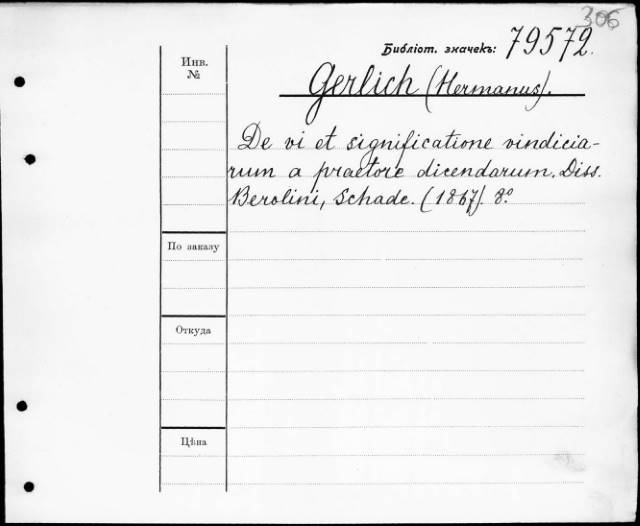 306
Библіот. значекъ: 79572.
Инв. №
Gerlich (Hermanus).
De vi et significatione vindicia-
rum a praetore dicendarum. Diss.
Berolini, Schade. (1867). 8.°
По заказу
Откуда
Цѣна